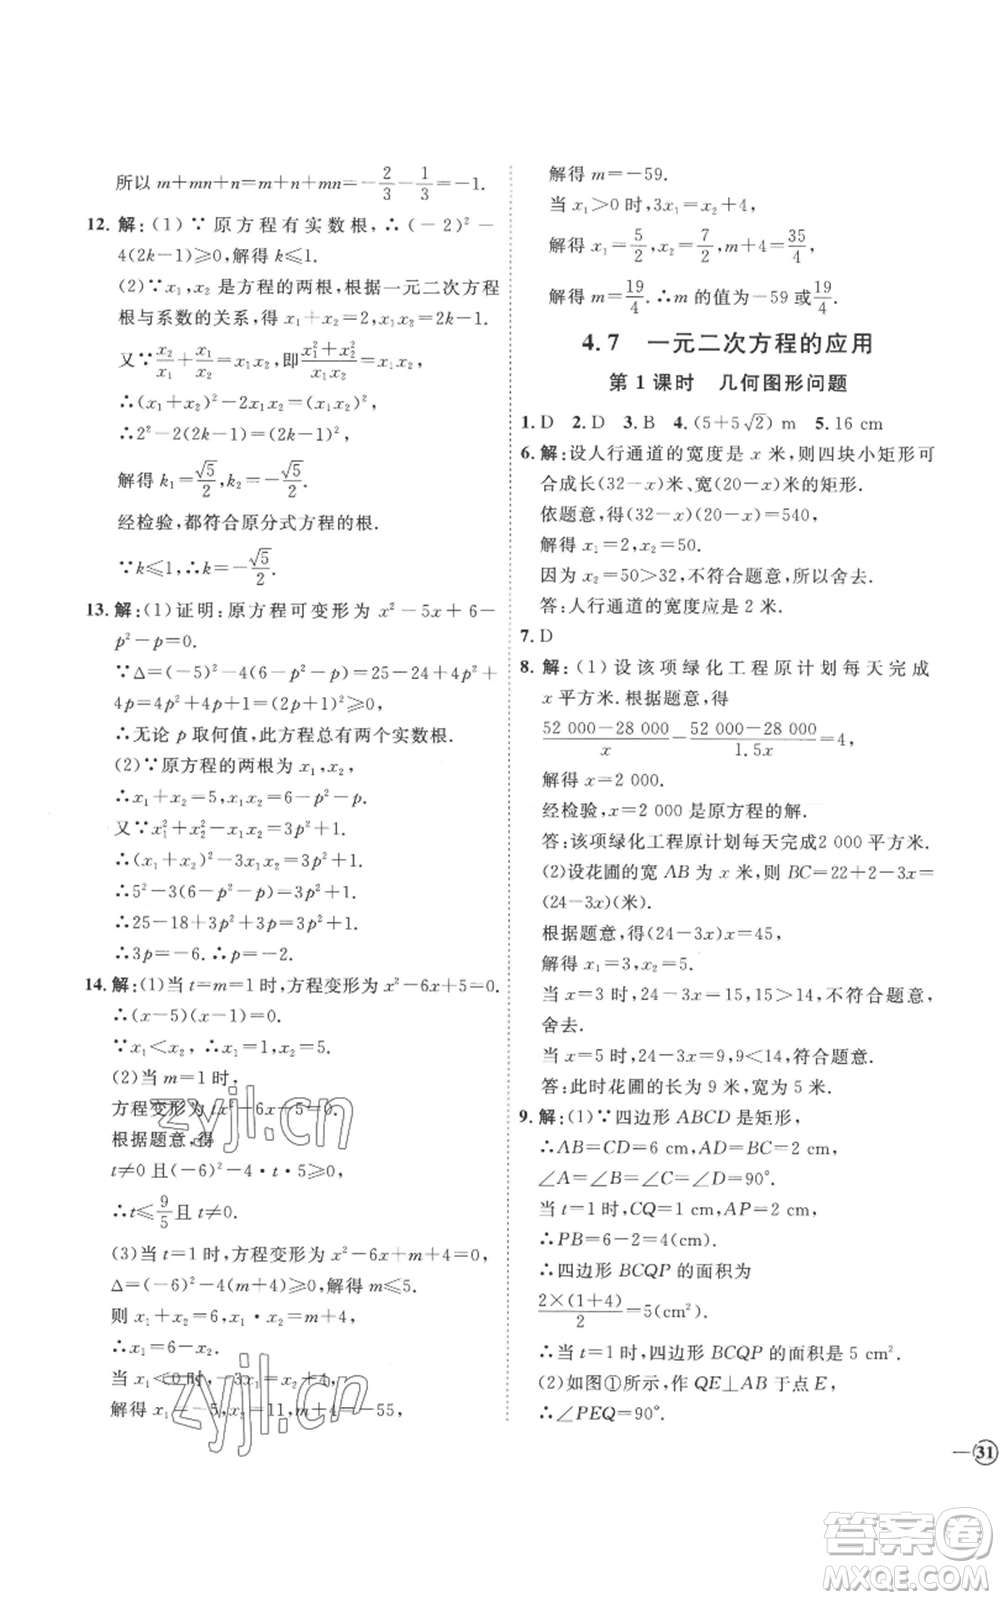 所以 m+mn+n=m+n+mn=-2/3-1/3=-1.
12. 解:(1)∵原方程有实数根,∴(-2)²-
4(2k-1)≥0,解得 k≤1.
(2)∵x₁,x₂ 是方程的两根,根据一元二次方程
根与系数的关系,得 x₁+x₂=2,x₁x₂=2k-1.
又∵x₂/x₁+x₁/x₂=x₁x₂,即(x₁²+x₂²)/(x₁x₂)=x₁x₂,
∴(x₁+x₂)²-2x₁x₂=(x₁x₂)²,
∴2²-2(2k-1)=(2k-1)².
解得 k₁=√5/2,k₂=-√5/2.
经检验,都符合原分式方程的根.
∵k≤1,∴k=-√5/2.
13. 解:(1)证明:原方程可变形为 x²-5x+6-
p²-p=0.
∵Δ=(-5)²-4(6-p²-p)=25-24+4p²+
4p=4p²+4p+1=(2p+1)²≥0,
∴无论 p 取何值,此方程总有两个实数根.
(2)∵原方程的两根为 x₁,x₂,
∴x₁+x₂=5,x₁x₂=6-p²-p.
又∵x₁²+x₂²-x₁x₂=3p²+1,
∴(x₁+x₂)²-3x₁x₂=3p²+1.
∴5²-3(6-p²-p)=3p²+1.
∴25-18+3p²+3p=3p²+1.
∴3p=-6.∴p=-2.
14. 解:(1)当 t=m=1 时,方程变形为 x²-6x+5=0.
∴(x-5)(x-1)=0.
∵x₁<x₂,∴x₁=1,x₂=5.
(2)当 m=1 时,
方程变形为 tx²-6x+5=0.
根据题意,得
t≠0 且(-6)²-4·t·5≥0,
∴t≤9/5 且 t≠0.
(3)当 t=1 时,方程变形为 x²-6x+m+4=0,
Δ=(-6)²-4(m+4)≥0,解得 m≤5.
则 x₁+x₂=6,x₁·x₂=m+4,
∴x₁=6-x₂.
当 x₁<0 时,-3x₁=x₂+4,
解得 x₁=-5,x₂=11,m+4=-55,
解得 m=-59.
当 x₁>0 时,3x₁=x₂+4,
解得 x₁=5/2,x₂=7/2,m+4=35/4,
解得 m=19/4.∴m 的值为-59 或19/4.
4.7 一元二次方程的应用
第 1 课时 几何图形问题
1. D 2. D 3. B 4. (5+5√2) m 5. 16 cm
6. 解:设人行通道的宽度是 x 米,则四块小矩形可
合成长(32-x)米、宽(20-x)米的矩形.
依题意,得(32-x)(20-x)=540,
解得 x₁=2,x₂=50.
因为 x₂=50>32,不符合题意,所以舍去.
答:人行通道的宽度应是 2 米.
7. D
8. 解:(1)设该项绿化工程原计划每天完成
x 平方米.根据题意,得
(52 000-28 000)/x-(52 000-28 000)/1.5x=4,
解得 x=2 000.
经检验,x=2 000 是原方程的解.
答:该项绿化工程原计划每天完成2 000 平方米.
(2)设花圃的宽 AB 为 x 米,则 BC=22+2-3x=
(24-3x)(米).
根据题意,得(24-3x)x=45,
解得 x₁=3,x₂=5.
当 x=3 时,24-3x=15,15>14,不符合题意,
舍去.
当 x=5 时,24-3x=9,9<14,符合题意.
答:此时花圃的长为 9 米,宽为 5 米.
9. 解:(1)∵四边形 ABCD 是矩形,
∴AB=CD=6 cm,AD=BC=2 cm,
∠A=∠B=∠C=∠D=90°.
当 t=1 时,CQ=1 cm,AP=2 cm,
∴PB=6-2=4(cm).
∴四边形 BCQP 的面积为
2×(1+4)/2=5(cm²).
∴当 t=1 时,四边形 BCQP 的面积是 5 cm².
(2)如图①所示,作 QE⊥AB 于点 E,
∴∠PEQ=90°.
31
zyjl.cn
zyjl.cn
答案卷
MXQE.COM